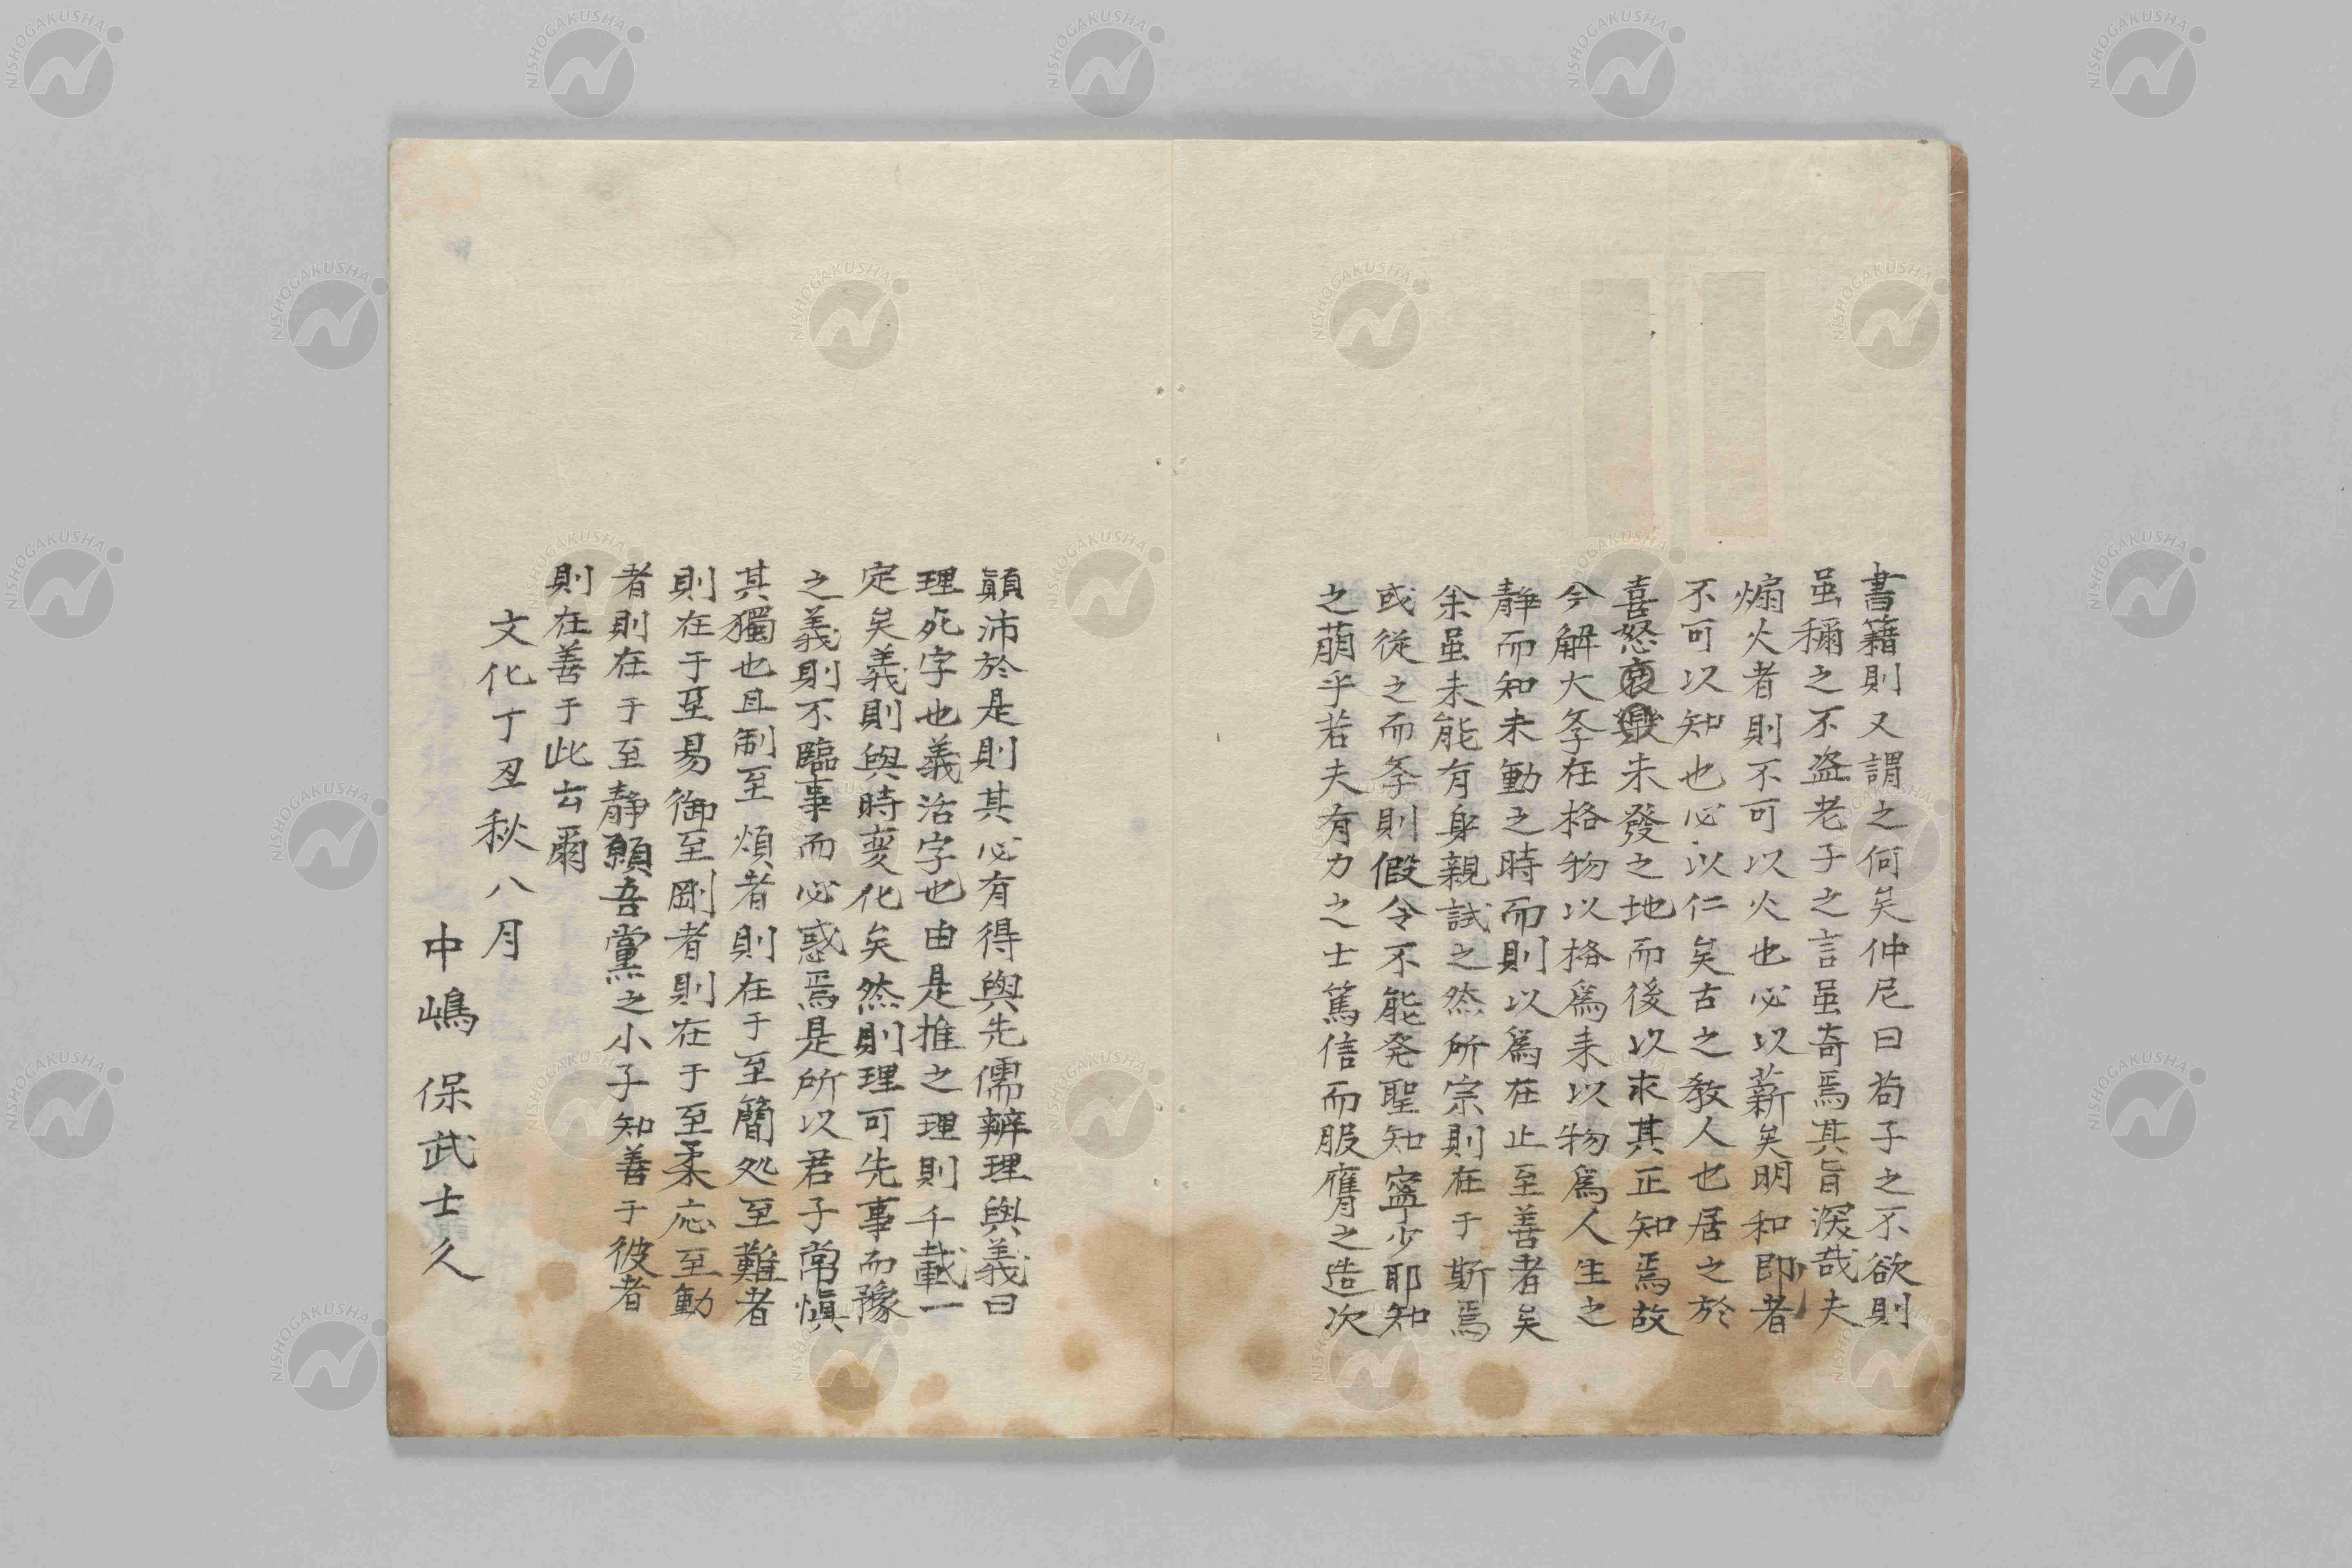 書籍則又謂之何矣仲尼曰苟子之不欲則
虽稱之不盗老子之言虽奇焉其旨深哉夫
煽火者則不可以火也必以薪矣明和即者
不可以知也必以仁矣古之教人也居之於
喜怒哀樂未發之地而後以求其正知焉故
今解大斈在格物以格爲来以物爲人生之
静而知未動之時而則以爲在止至善者矣
余虽未能有身親試之然所宗則在于斯焉
或従之而斈則假令不能発聖知寧少耶知
之萠乎若夫有力之士篤信而服膺之造次
顛沛於是則其必有得與先儒辨理與義曰
理死字也義活字也由是推之理則千載一
定矣義則與時変化矣然則理可先事而豫
之義則不臨事而必惑焉是所以君子常慎
其獨也且制至煩者則在于至簡処至難者
則在于至易御至剛者則在于至柔応至動
者則在于至静願吾黨之小子知善于彼者
則在善于此云爾
文化丁丑秋八月
中嶋保武士久
NISHOGAKUSHA